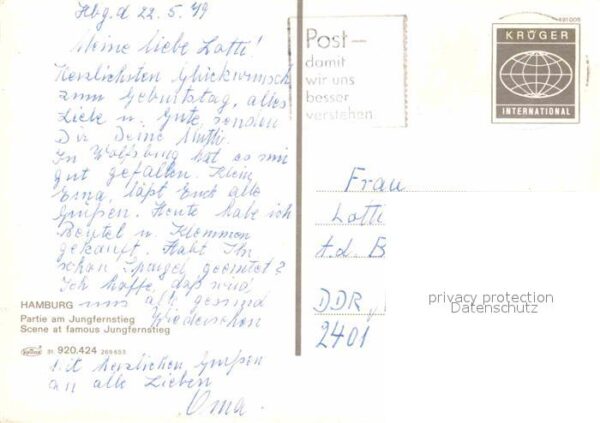 Hbg. d 22.5.79
Meine liebe Lotti!
Herzlichsten Glückwunsch
zum Geburtstag, alles
Liebe u. Gute senden
Dir Deine Mutti.
In Wolfsburg hat es mir
gut gefallen. Klein
Erna, läßt Euch alle
Grüßen. Heute habe ich
Beutel u. Klammen
gekauft. Habt Ihr
schon Spargel geerntet?
Ich hoffe, daß wir
uns alle gesund
Wiedersehen
Mit herzlichen Grüßen
an alle Lieben
Oma.
HAMBURG
Partie am Jungfernstieg
Scene at famous Jungfernstieg
Krüger 51. 920.424 269653
Post–
damit
wir uns
besser
verstehen.
KRÜGER
INTERNATIONAL
Frau
Lotti
DDR,
2401
privacy protection
Datenschutz